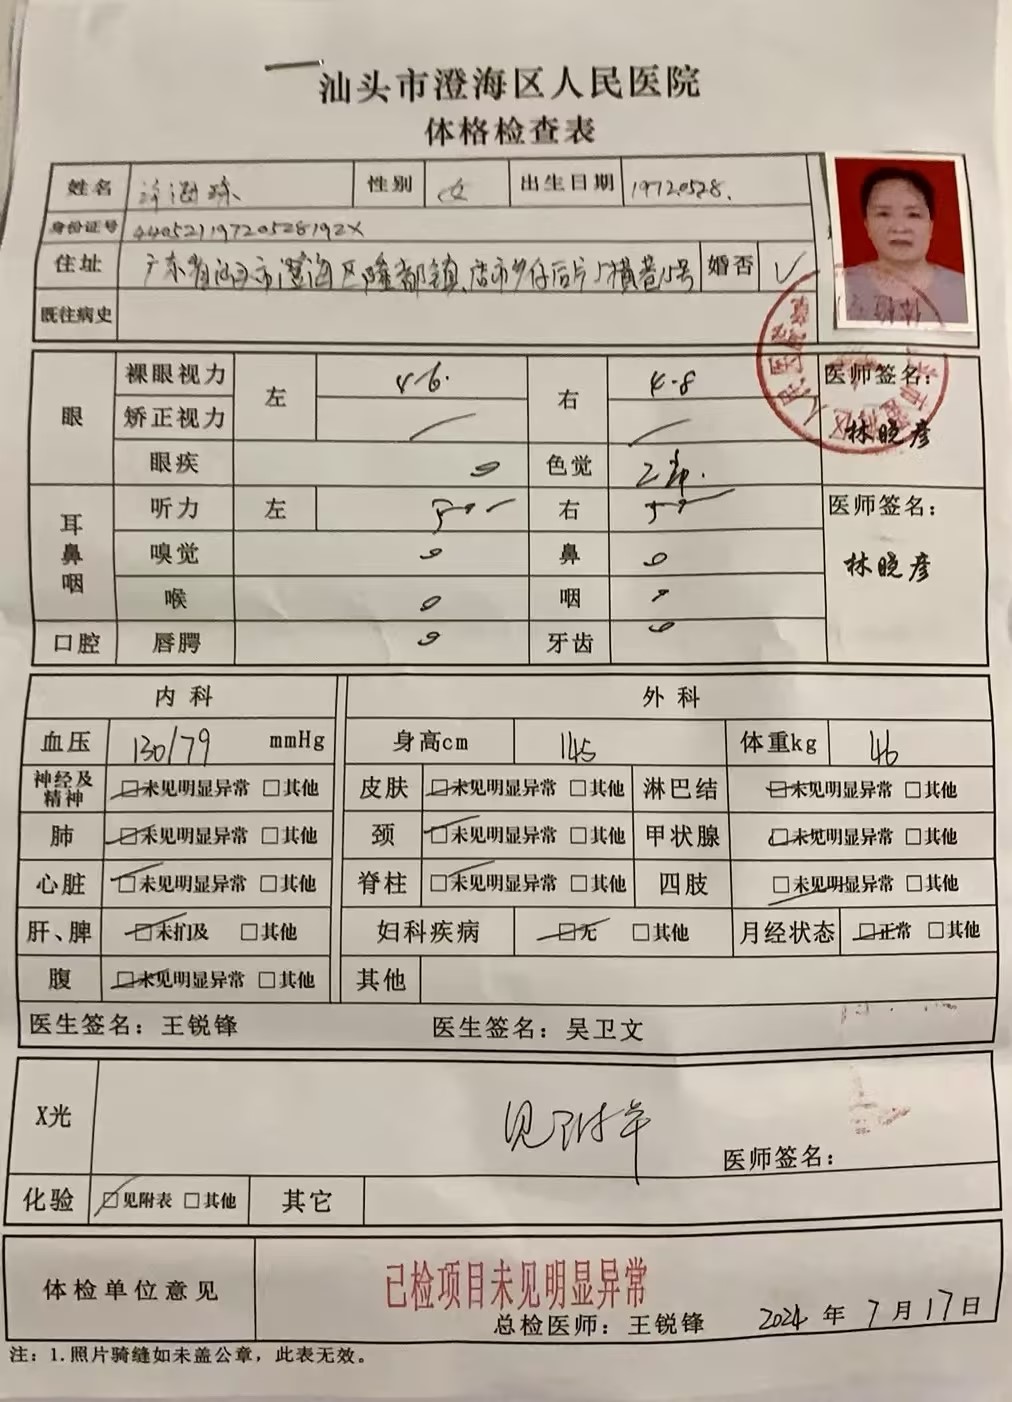 汕头市澄海区人民医院
体格检查表
姓名 性别 女 出生日期 19720528.
身份证号 44052119720528192X
住址 广东省汕头市澄海区隆都镇 店市乡仔后片 横巷15号 婚否 √
既往病史
眼 裸眼视力 左 4.6. 右 4.8 医师签名:
矫正视力 林晓彦
眼疾 色觉
耳鼻咽 听力 左 右 医师签名:
嗅觉 鼻 林晓彦
喉 咽
口腔 唇腭 牙齿
内科 外科
血压 130/79 mmHg 身高cm 145 体重kg 46
神经及精神 □未见明显异常 □其他 皮肤 □未见明显异常 □其他 淋巴结 □未见明显异常 □其他
肺 □未见明显异常 □其他 颈 □未见明显异常 □其他 甲状腺 □未见明显异常 □其他
心脏 □未见明显异常 □其他 脊柱 □未见明显异常 □其他 四肢 □未见明显异常 □其他
肝、脾 □未扪及 □其他 妇科疾病 □无 □其他 月经状态 □正常 □其他
腹 □未见明显异常 □其他 其他
医生签名: 王锐锋 医生签名: 吴卫文
X光 见附单 医师签名:
化验 □见附表 □其他 其它
体检单位意见 已检项目未见明显异常
总检医师: 王锐锋 2024 年 7 月 17 日
注: 1.照片骑缝如未盖公章,此表无效。